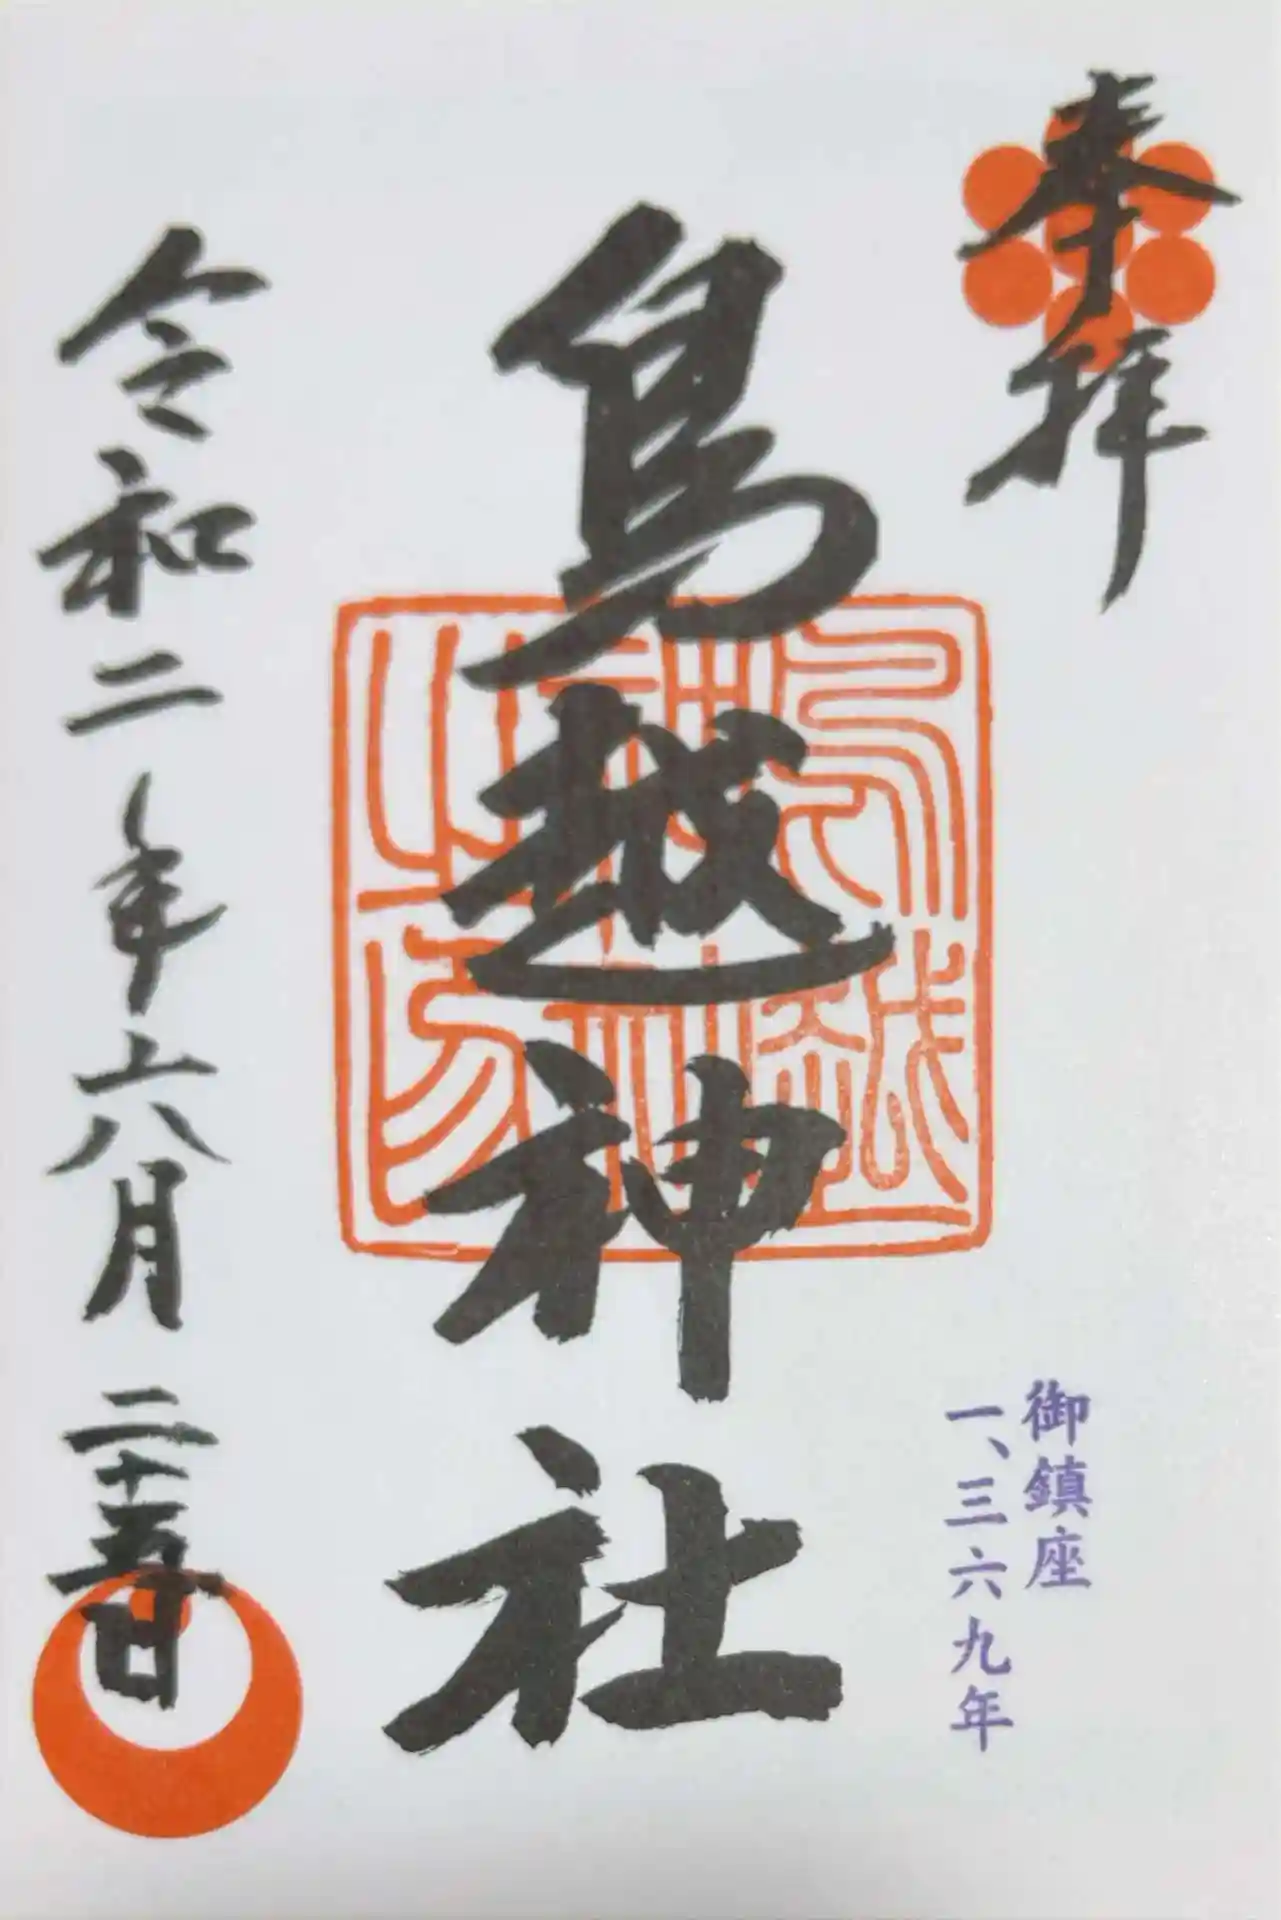 奉拝
鳥越神社
令和二年六月二十五日
御鎮座
一、三六九年